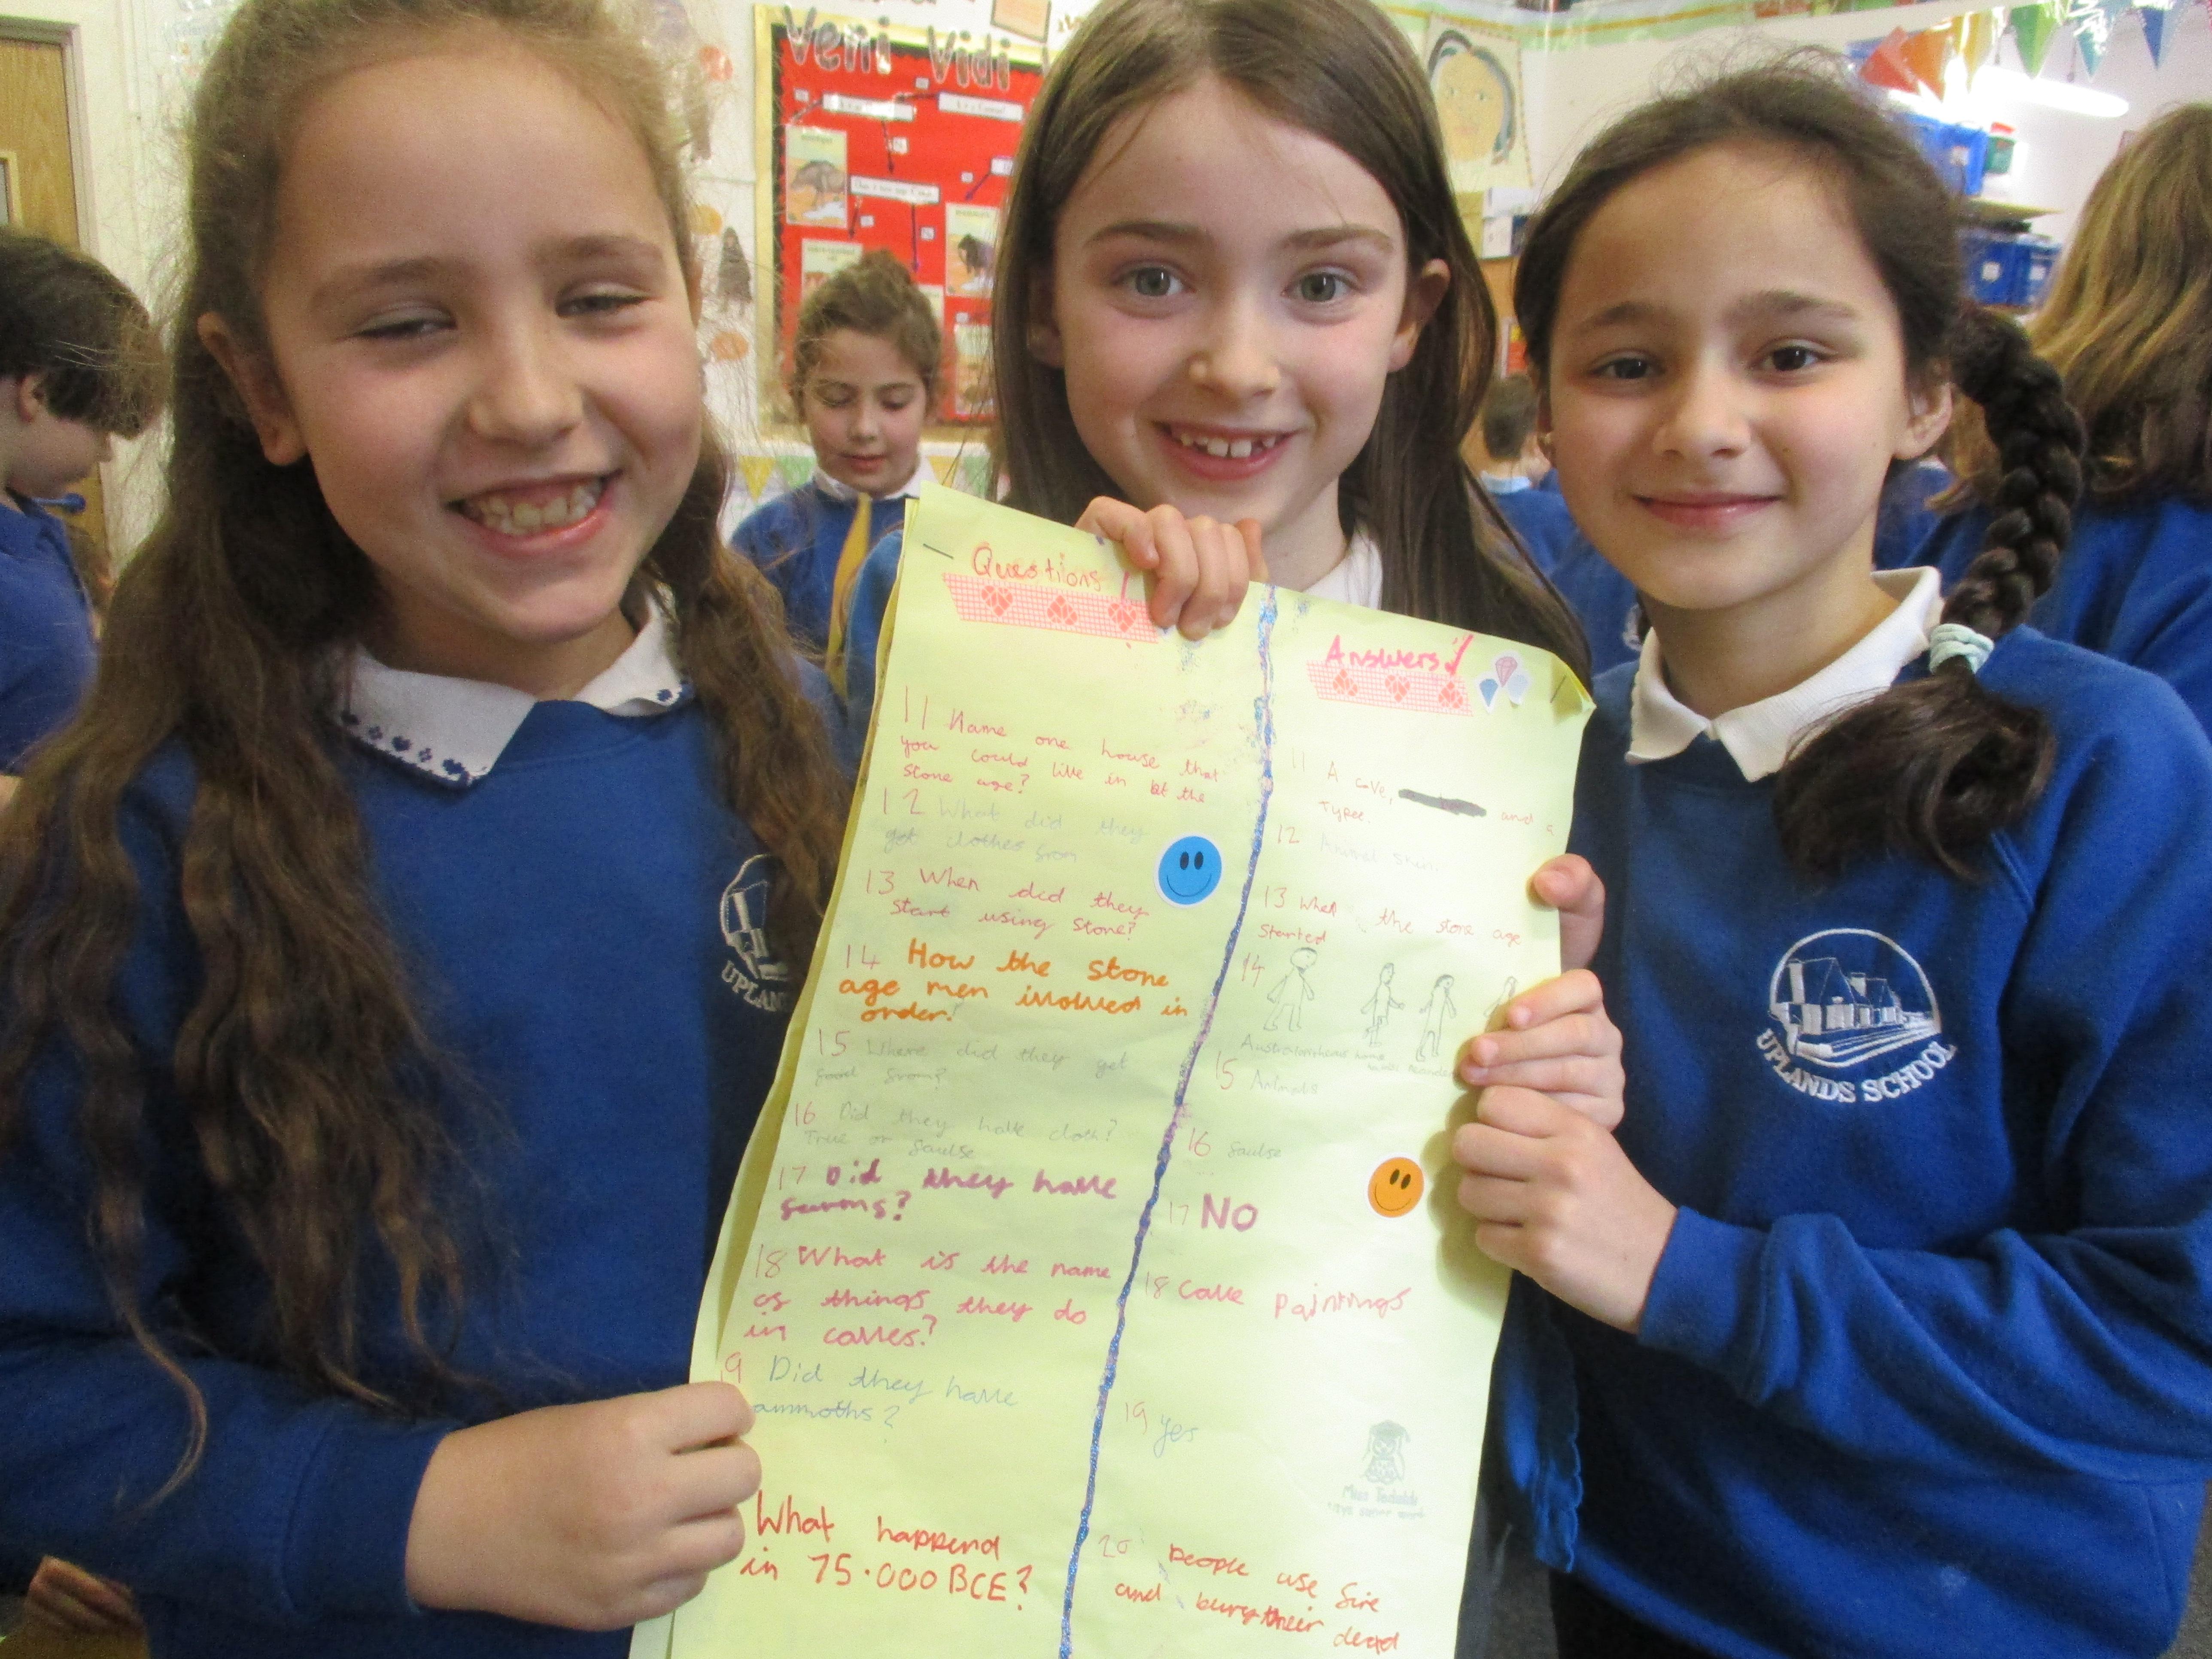 Veni Vidi
Questions!
11 Name one house that
you could live in bit the
stone age?
12 What did they
get clothes from
13 When did they
start using stone?
14 How the stone
age men involved in
order!
15 Where did they get
food from?
16 Did they have cloth?
True or faulse
17 Did they have
18 What is the name
of things they do
in caves?
19 Did they have
ammoths?
What happend
in 75.000 BCE?
Answers!
11 A cave, and a
Typee.
12 Animal skin.
13 When the stone age
Started
14
15 Animals
16 faulse
17 NO
18 Cave paintings
19 yes
20 people use fire
and bury their
dead
UPLANDS SCHOOL
UPLAN